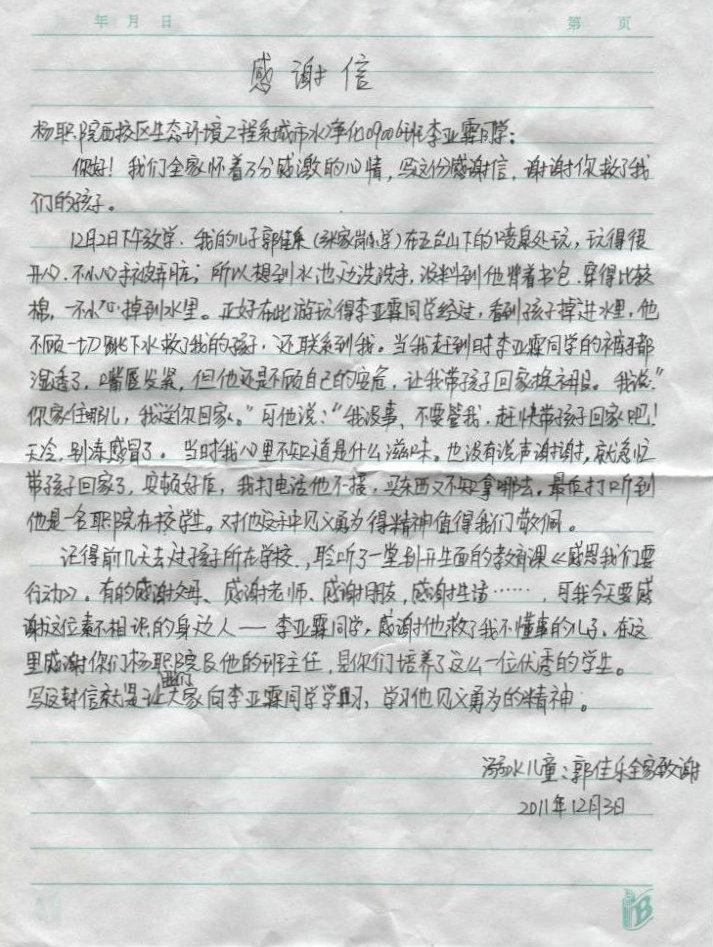 年 月 日
第 页
感谢信
杨职院西校区生态环境工程系城市水净化09006班李亚霖同学:
你好!我们全家怀着万分感激的心情,写这份感谢信,谢谢你救了我
们的孩子。
12月2日下午放学.我的儿子郭佳乐(张家岗小学)在五台山下的喷泉处玩,玩得很
开心.不小心手被弄脏;所以想到水池边洗洗手,没料到他背着书包.穿得比较
棉,一不小心掉到水里。正好在此游玩得李亚霖同学经过,看到孩子掉进水里,他
不顾一切跳下水救了我的孩子,还联系到我。当我赶到时李亚霖同学的裤子都
湿透了,嘴唇发紧,但他还是不顾自己的安危,让我带孩子回家换衣服。我说:"
你家住哪儿,我送你回家。"可他说:"我没事,不要管我,赶快带孩子回家吧!
天冷,别冻感冒了。当时我心里不知道是什么滋味。也没有说声谢谢,就急忙
带孩子回家了,安顿好后,我打电话他不接,买东西又不知拿哪去。最后打听到
他是一名职院在校学生。对他这种见义勇为得精神值得我们敬佩。
记得前几天去过孩子所在学校.,聆听了一堂别开生面的教育课《感恩我们要
行动》。有的感谢父母、感谢老师、感谢朋友,感谢生活……,可我今天要感
谢这位素不相识的身边人——李亚霖同学,感谢他救了我不懂事的儿子。在这
里感谢你们杨职院及他的班主任,是你们培养了这么一位优秀的学生。
写这封信就是让大家向李亚霖同学学习,学习他见义勇为的精神。
溺水儿童:郭佳乐全家致谢
2011年12月3日
B